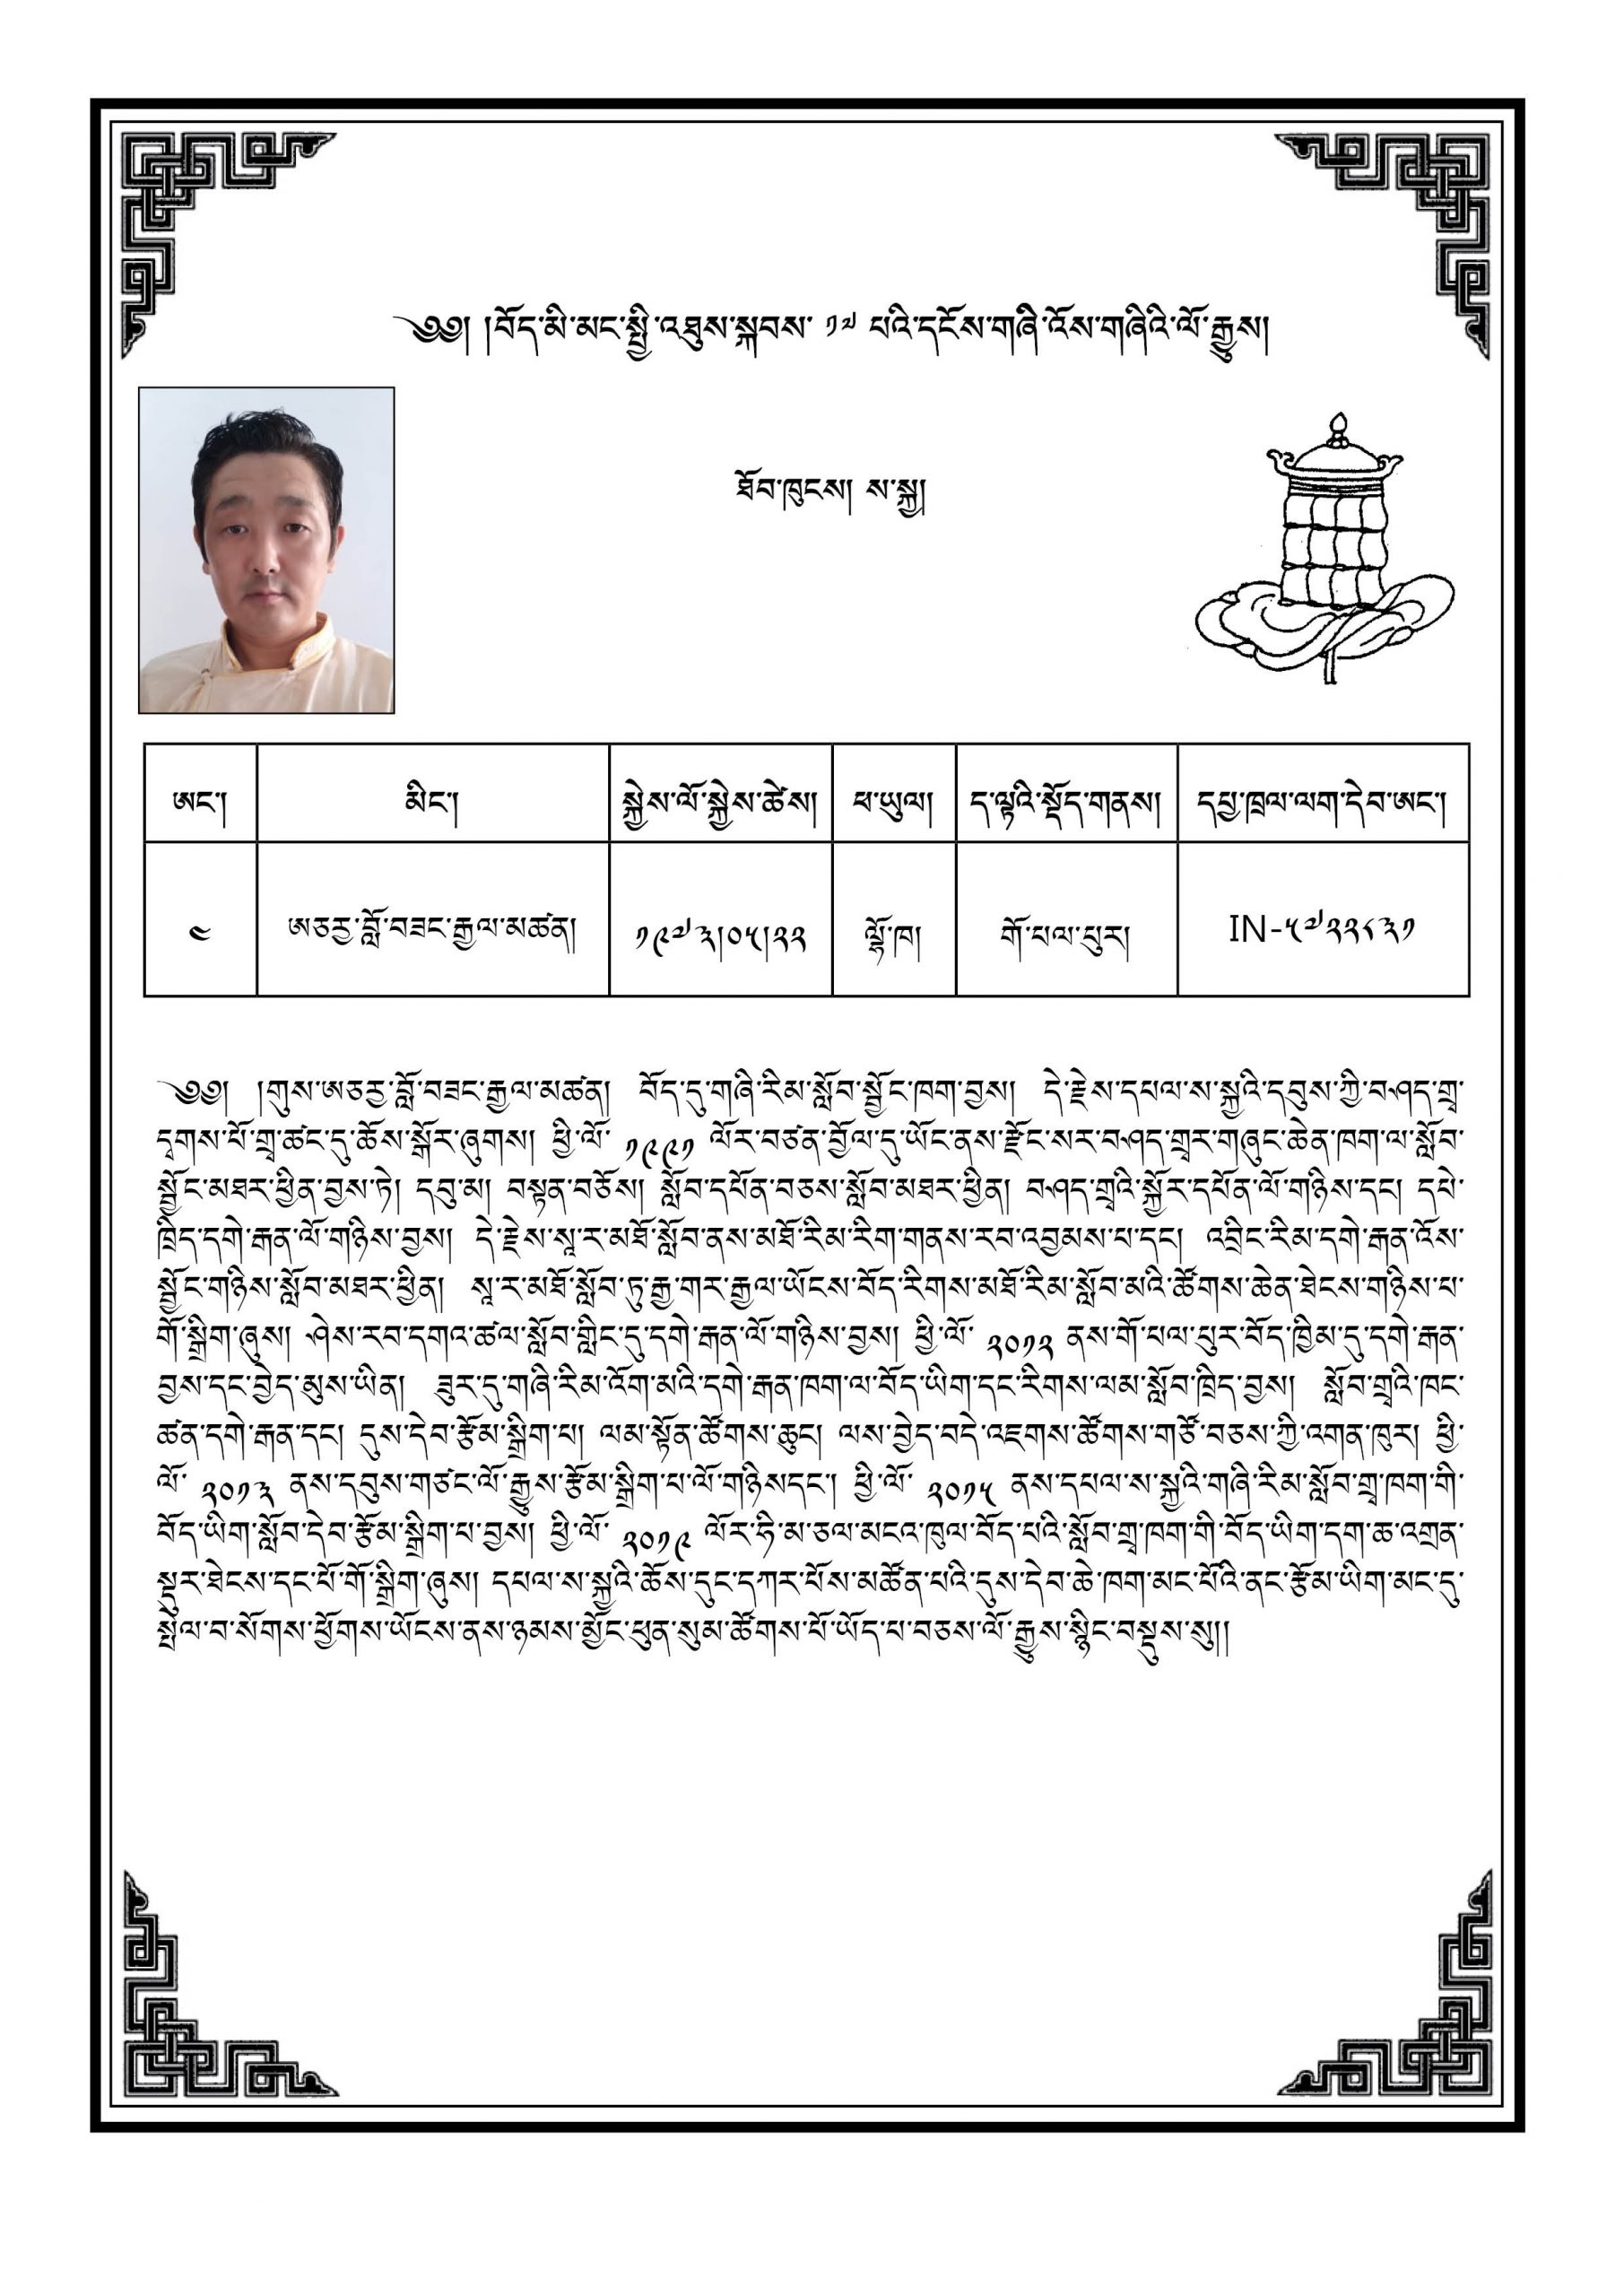 ༄༅། །བོད་མི་མང་སྤྱི་འཐུས་སྐབས་ ༡༧ པའི་དངོས་གཞི་འོས་གཞིའི་ལོ་རྒྱུས།
ཐོབ་ཁུངས། ས་སྐྱ།
ཨང་། མིང་། སྐྱེས་ལོ་སྐྱེས་ཚེས། ཕ་ཡུལ། ད་ལྟའི་སྡོད་གནས། དཔྱ་ཁྲལ་ལག་དེབ་ཨང་།
༤ ཨ་ཙརྱ་བློ་བཟང་རྒྱལ་མཚན། ༡༩༧༣།༠༥།༢༢ ལྷོ་ཁ། གོ་པལ་པུར། IN-༥༧༢༢༨༣༡
༄༅། །གུས་ཨ་ཙརྱ་བློ་བཟང་རྒྱལ་མཚན། བོད་དུ་གཞི་རིམ་སློབ་སྦྱོང་ཁག་བྱས། དེ་རྗེས་དཔལ་ས་སྐྱའི་དབུས་ཀྱི་བཤད་གྲྭ་
དྭགས་པོ་གྲྭ་ཚང་དུ་ཆོས་སྒོར་ཞུགས། ཕྱི་ལོ་ ༡༩༩༡ ལོར་བཙན་བྱོལ་དུ་ཡོང་ནས་རྫོང་སར་བཤད་གྲྭར་གཞུང་ཆེན་ཁག་ལ་སློབ་
སྦྱོང་མཐར་ཕྱིན་བྱས་ཏེ། དབུ་མ། བསྟན་བཅོས། སློབ་དཔོན་བཅས་སློབ་མཐར་ཕྱིན། བཤད་གྲྭའི་སྐྱོར་དཔོན་ལོ་གཉིས་དང། དཔེ་
ཁྲིད་དགེ་རྒན་ལོ་གཉིས་བྱས། དེ་རྗེས་སཱ་ར་མཐོ་སློབ་ནས་མཐོ་རིམ་རིག་གནས་རབ་འབྱམས་པ་དང། འབྲིང་རིམ་དགེ་རྒན་འོས་
སྦྱོང་གཉིས་སློབ་མཐར་ཕྱིན། སཱ་ར་མཐོ་སློབ་ཏུ་རྒྱ་གར་རྒྱལ་ཡོངས་བོད་རིགས་མཐོ་རིམ་སློབ་མའི་ཚོགས་ཆེན་ཐེངས་གཉིས་པ་
གོ་སྒྲིག་ཞུས། ཤེས་རབ་དགའ་ཚལ་སློབ་གླིང་དུ་དགེ་རྒན་ལོ་གཉིས་བྱས། ཕྱི་ལོ་ ༢༠༡༢ ནས་གོ་པལ་པུར་བོད་ཁྱིམ་དུ་དགེ་རྒན་
བྱས་དང་བྱེད་མུས་ཡིན། ཟུར་དུ་གཞི་རིམ་འོག་མའི་དགེ་རྒན་ཁག་ལ་བོད་ཡིག་དང་རིགས་ལམ་སློབ་ཁྲིད་བྱས། སློབ་གྲྭའི་ཁང་
ཚན་དགེ་རྒན་དང། དུས་དེབ་རྩོམ་སྒྲིག་པ། ལམ་སྟོན་ཚོགས་ཆུང། ལས་བྱེད་བདེ་འཇགས་ཚོགས་གཙོ་བཅས་ཀྱི་འགན་ཁུར། ཕྱི་
ལོ་ ༢༠༡༣ ནས་དབུས་གཙང་ལོ་རྒྱུས་རྩོམ་སྒྲིག་པ་ལོ་གཉིསདང་། ཕྱི་ལོ་ ༢༠༡༥ ནས་དཔལ་ས་སྐྱའི་གཞི་རིམ་སློབ་གྲྭ་ཁག་གི་
བོད་ཡིག་སློབ་དེབ་རྩོམ་སྒྲིག་པ་བྱས། ཕྱི་ལོ་ ༢༠༡༩ ལོར་ཧི་མ་ཅལ་མངའ་ཁུལ་བོད་པའི་སློབ་གྲྭ་ཁག་གི་བོད་ཡིག་དག་ཆ་འགྲན་
སྡུར་ཐེངས་དང་པོ་གོ་སྒྲིག་ཞུས། དཔལ་ས་སྐྱའི་ཆོས་དུང་དཀར་པོས་མཚོན་པའི་དུས་དེབ་ཆེ་ཁག་མང་པོའི་ནང་རྩོམ་ཡིག་མང་དུ་
སྤེལ་བ་སོགས་ཕྱོགས་ཡོངས་ནས་ཉམས་མྱོང་ཕུན་སུམ་ཚོགས་པོ་ཡོད་པ་བཅས་ལོ་རྒྱུས་སྙིང་བསྡུས་སུ།།